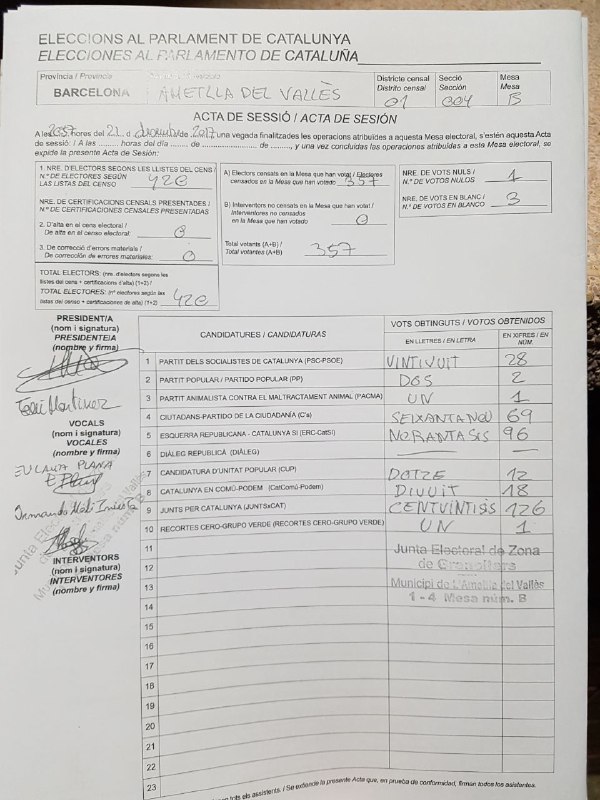 ELECCIONS AL PARLAMENT DE CATALUNYA
ELECCIONES AL PARLAMENTO DE CATALUÑA
Província / Provincia
BARCELONA
AMETLLA DEL VALLÈS
Districte censal
Distrito censal
01
Secció
Sección
004
Mesa
Mesa
B
ACTA DE SESSIÓ / ACTA DE SESIÓN
A les 20:57 hores del 21 d desembre de 2017 una vegada finalitzades les operacions atribuïdes a aquesta Mesa electoral, s'estén aquesta Acta
de sessió: / A las ......... horas del día ....... de ................... de ........, y una vez concluidas las operaciones atribuidas a esta Mesa electoral, se
expide la presente Acta de Sesión:
1. NRE. D'ELECTORS SEGONS LES LLISTES DEL CENS /
N.º DE ELECTORES SEGÚN
LAS LISTAS DEL CENSO
420
NRE. DE CERTIFICACIONS CENSALS PRESENTADES /
N.º DE CERTIFICACIONES CENSALES PRESENTADAS
2. D'alta en el cens electoral /
De alta en el censo electoral:
0
3. De correcció d'errors materials /
De corrección de errores materiales:
0
TOTAL ELECTORS: (nre. d'electors segons les
llistes del cens + certificacions d'alta) (1+2) /
TOTAL ELECTORES: (nº electores según las
listas del censo + certificaciones de alta) (1+2)
420
A) Electors censats en la Mesa que han votat / Electores
censados en la Mesa que han votado
357
B) Interventors no censats en la Mesa que han votat /
Interventores no censados
en la Mesa que han votado
0
Total votants (A+B) /
Total votantes (A+B)
357
NRE. DE VOTS NULS /
N.º DE VOTOS NULOS
1
NRE. DE VOTS EN BLANC /
N.º DE VOTOS EN BLANCO
3
PRESIDENT/A
(nom i signatura)
PRESIDENTE/A
(nombre y firma)
Martinez
VOCALS
(nom i signatura)
VOCALES
(nombre y firma)
EULALIA PLANA
INTERVENTORS
(nom i signatura)
INTERVENTORES
(nombre y firma)
CANDIDATURES / CANDIDATURAS
VOTS OBTINGUTS / VOTOS OBTENIDOS
EN LLETRES / EN LETRA
EN XIFRES / EN NÚM.
1 PARTIT DELS SOCIALISTES DE CATALUNYA (PSC-PSOE) VINTIVUIT 28
2 PARTIT POPULAR / PARTIDO POPULAR (PP) DOS 2
3 PARTIT ANIMALISTA CONTRA EL MALTRACTAMENT ANIMAL (PACMA) UN 1
4 CIUTADANS-PARTIDO DE LA CIUDADANÍA (C's) SEIXANTANOU 69
5 ESQUERRA REPUBLICANA - CATALUNYA SI (ERC-CatSí) NORANTASIS 96
6 DIÀLEG REPUBLICÀ (DIÀLEG) — —
7 CANDIDATURA D'UNITAT POPULAR (CUP) DOTZE 12
8 CATALUNYA EN COMÚ-PODEM (CatComú-Podem) DIVUIT 18
9 JUNTS PER CATALUNYA (JUNTSxCAT) CENTVINTISIS 126
10 RECORTES CERO-GRUPO VERDE (RECORTES CERO-GRUPO VERDE) UN 1
11
Junta Electoral de Zona
12
de Granollers
13
Municipi de L'Ametlla del Vallès
1 - 4 Mesa núm. B
14
15
16
17
18
19
20
21
22
23
tots els assistents. / Se extiende la presente Acta que, en prueba de conformidad, firman todos los asistentes.